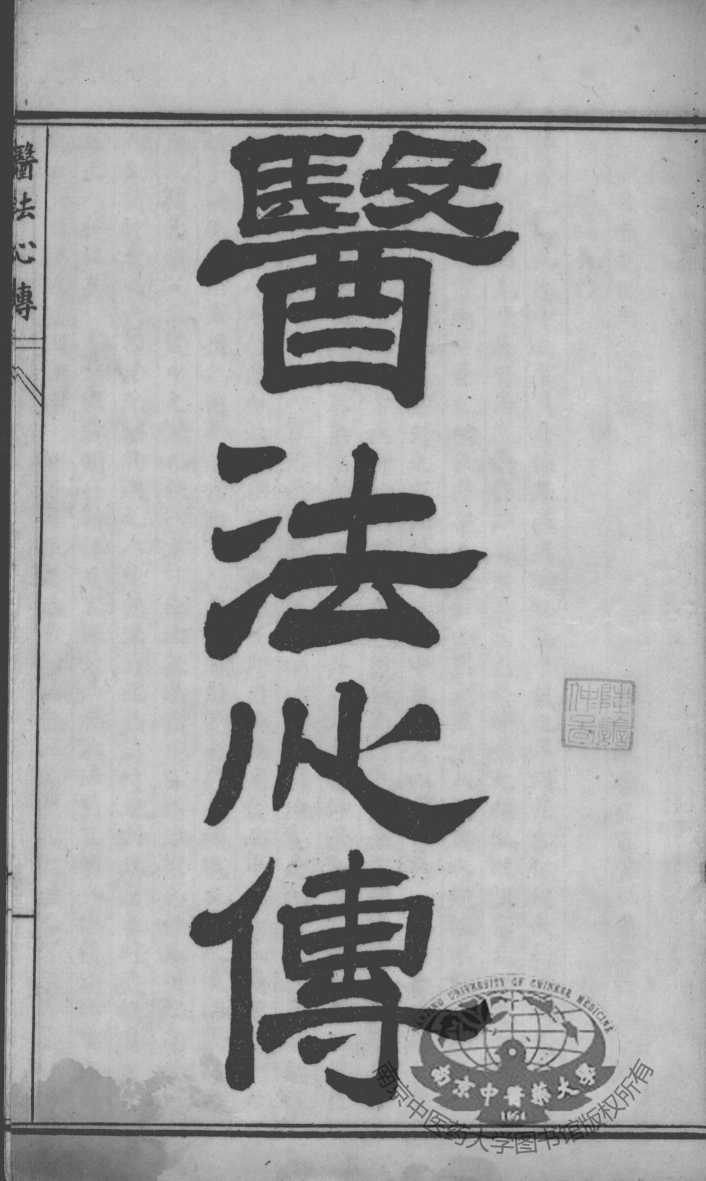 醫法心傳
醫法心傳
UNIVERSITY OF CHINESE MEDICINE
南京中醫藥大學
1954
南京中医药大学图书馆版权所有